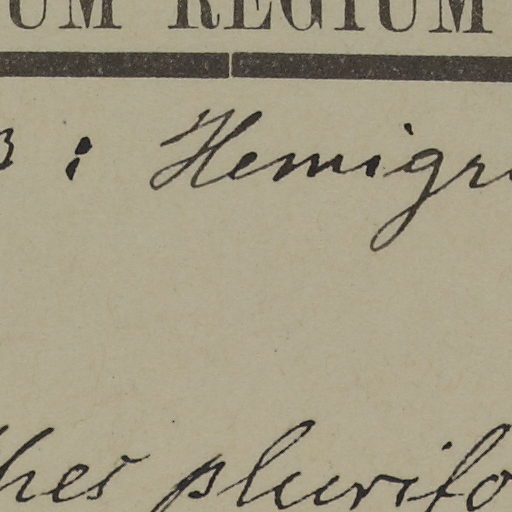 UM REGIUM
3 : Hemigr
hes plurifo